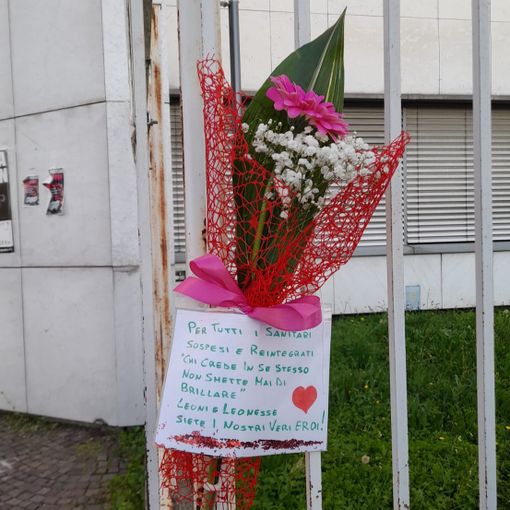 PER TUTTI I SANITARI
SOSPESI E REINTEGRATI
"CHI CREDE IN SE STESSO
NON SMETTE MAI DI
BRILLARE"
LEONI E LEONESSE
SIETE I NOSTRI VERI EROI!